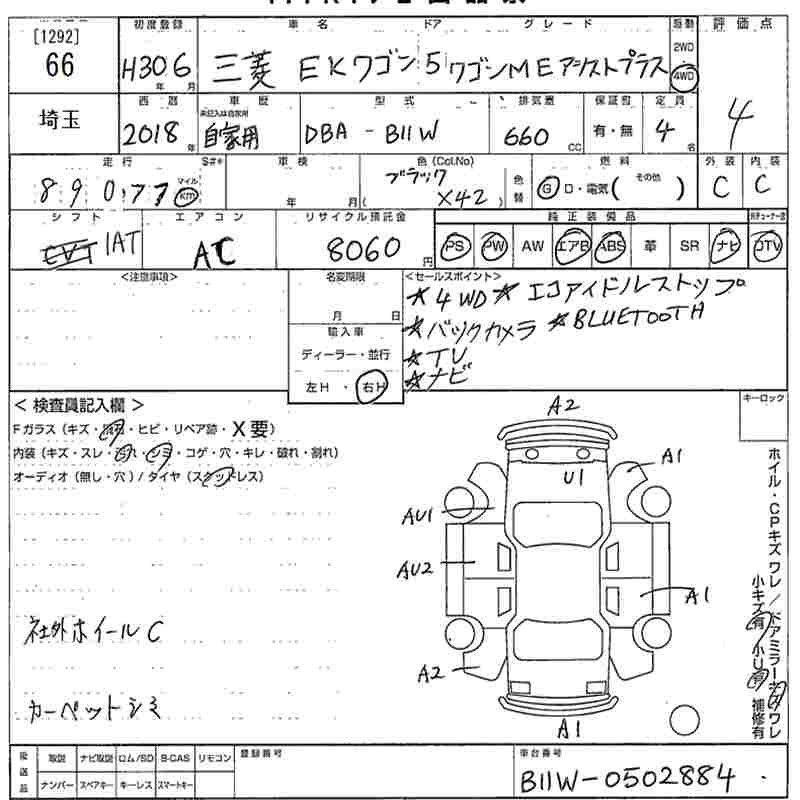 [1292]
66
埼玉
初度登録
H30年6月
車名 ドア グレード
三菱 EKワゴン 5 ワゴンM Eアシストプラス
駆動
2WD
4WD
評価点
4
西暦
2018年
車歴
未記入は自家用
自家用
型式
DBA-B11W
排気量
660 CC
保証書
有・無
定員
4名
走行 S#*
89077 マイル km
車検
年 月
色(Col.No)
ブラック
(X42)
色替
燃料
G D・電気( その他 )
外装
C
内装
C
シフト
CVT IAT
エアコン
AC
リサイクル預託金
8060円
純正装備品
PS PW AW エアB ABS 革 SR ナビ
DTV
<注意事項>
名変期限
月 日
輸入車
ディーラー・並行
左H・右H
<セールスポイント>
★4WD★エコアイドルストップ
★バックカメラ ★BLUETOOTH
★TV
★ナビ
<検査員記入欄>
Fガラス(キズ・飛石・ヒビ・リペア跡・X要)
内装(キズ・スレ・汚れ・シミ・コゲ・穴・キレ・破れ・割れ)
オーディオ(無し・穴)/タイヤ(スタッドレス)
社外ホイールC
カーペットシミ
A2
U1
A1
AU1
AU2
A1
A2
A1
キーロック
ホイル・CPキズ ワレ/ドアミラーキズワレ
小キズ有 小U有 補修有
後送品
取説 ナビ取説 ロム/SD B-CAS リモコン
ナンバー スペアキー キーレス スマートキー
登録番号
車台番号
B11W-0502884